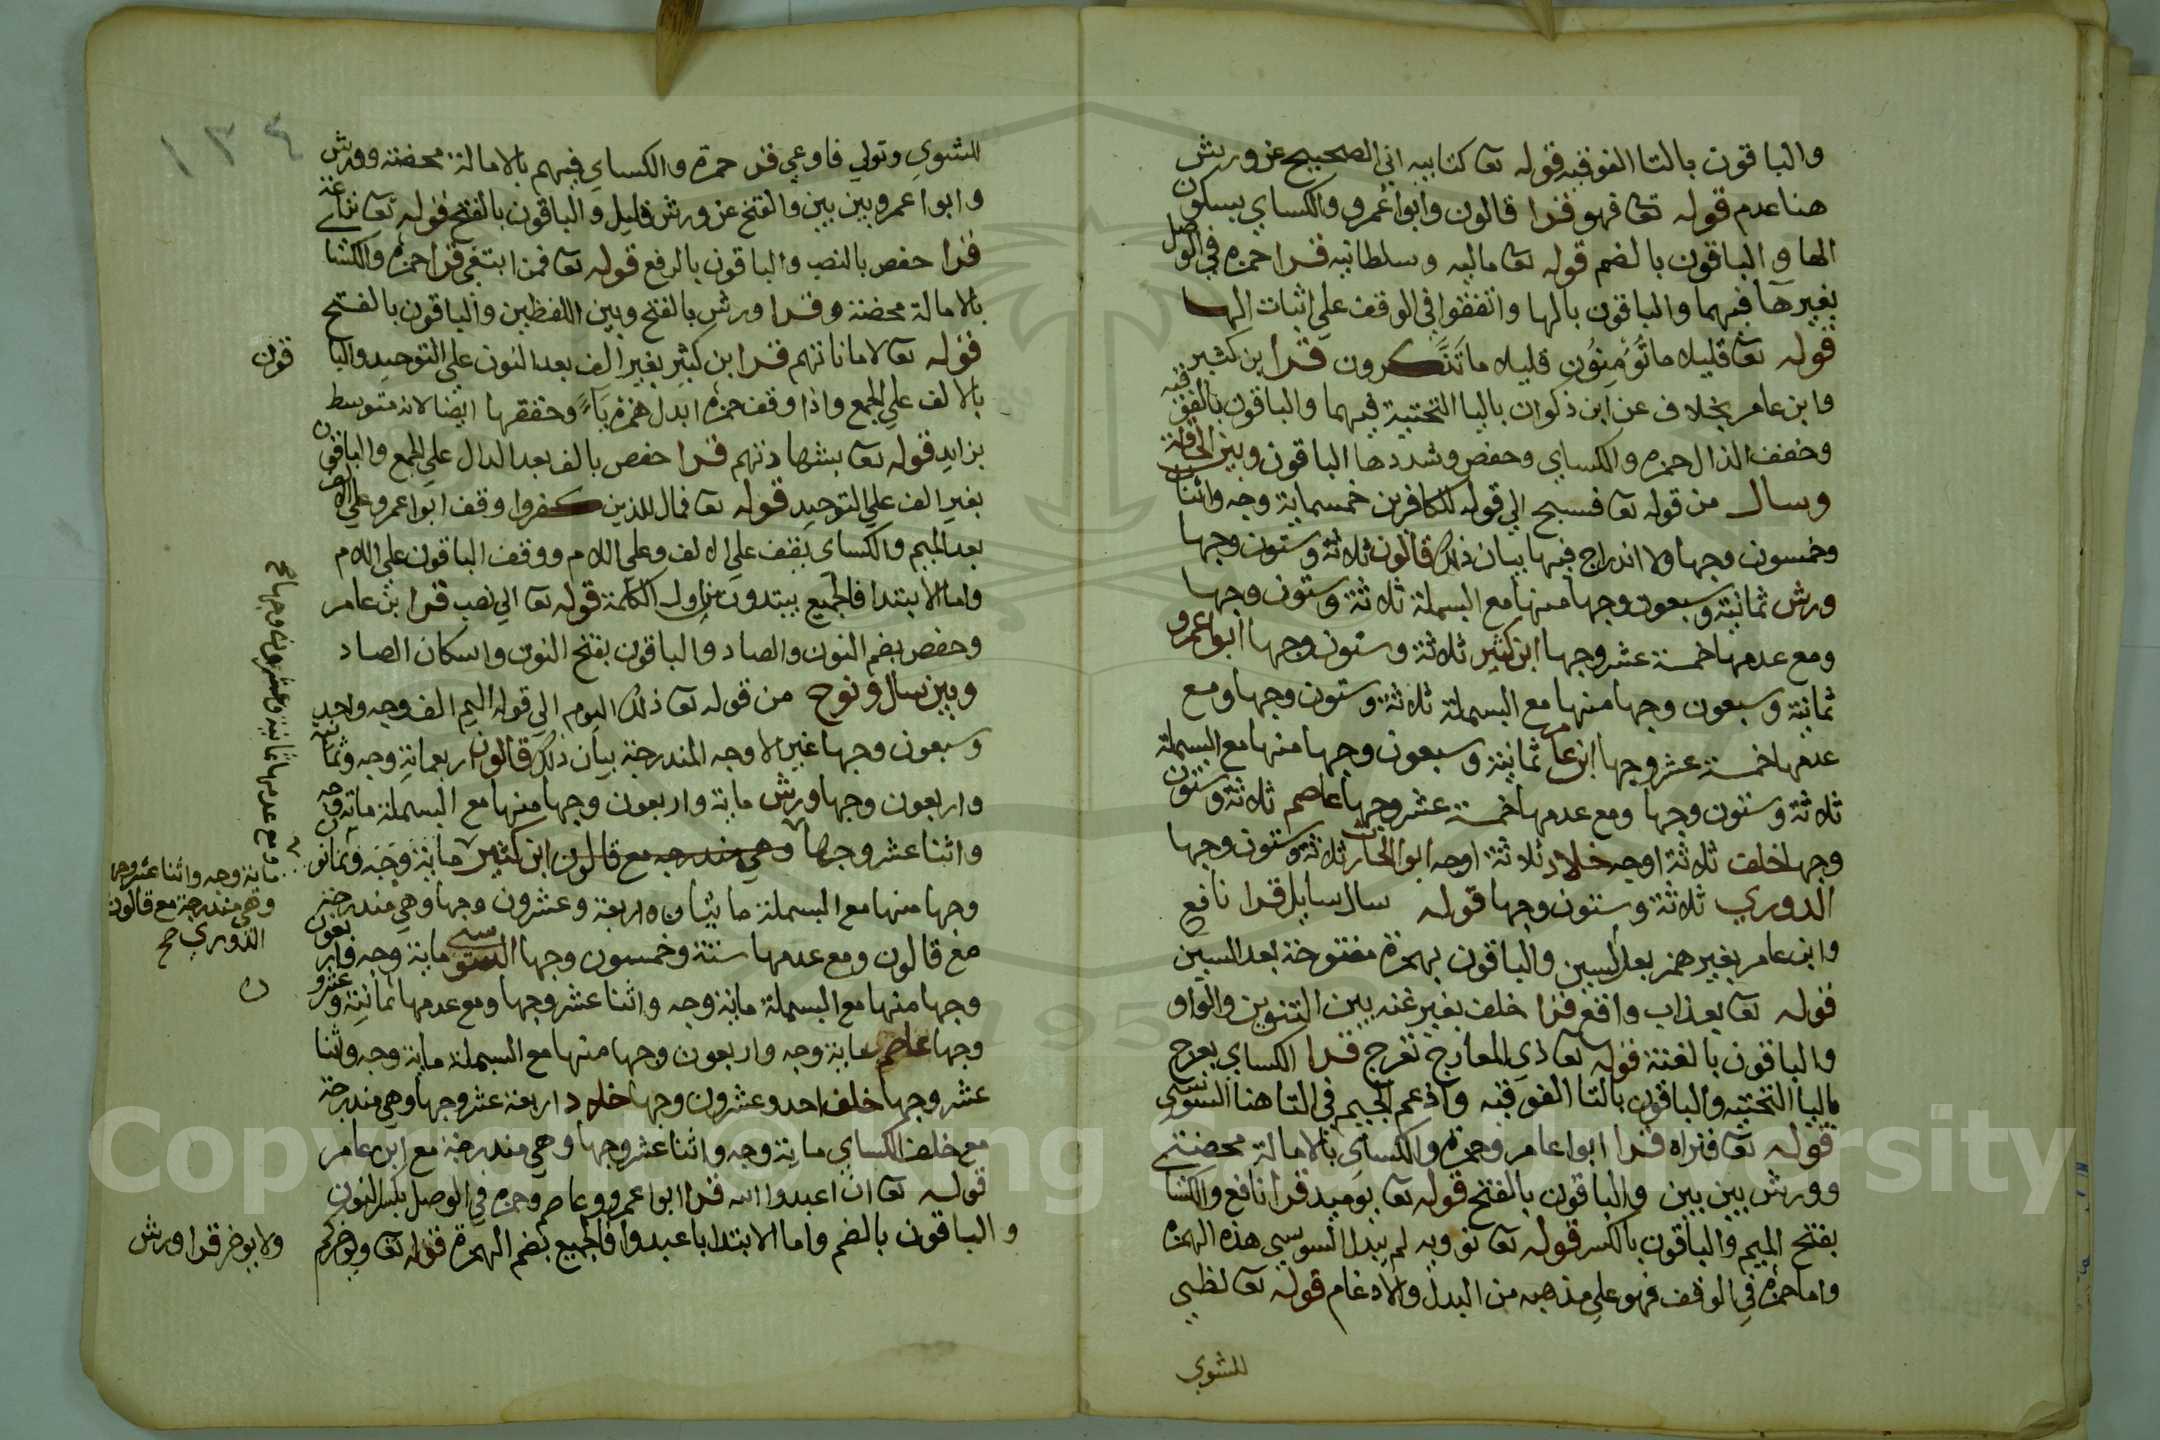 والباقون بالتا الفوقيه قوله تعا كتابيه اني الصحيح عن ورش
هنا عدم قوله تعا فهو قرا قالون وابوا عمرو والكساي بسكون
الها والباقون بالضم قوله تعا ماليه وسلطانيه قرا حمزه في الوصل
بغير ها فيهما والباقون بالها واتفقوا في الوقف علي اثبات الها
قوله تعا قليلا ما تؤمنون قليلا ما تذكرون قرا بن كثير
وابن عامر بخلاف عن ابن ذكوان باليا التحتية فيهما والباقون بالفوقيه
وخفف الذال حمزه والكساي وحفص وشددها الباقون وبين الحاقة
وسال من قوله تعا فسبح الي قوله للكافرين خمسماية وجه واثنان
وخمسون وجها ولا اندراج فيها بيان ذلك قالون ثلاثة وستون وجها
ورش ثمانية وسبعون وجها منها مع البسملة ثلاثة وستون وجها
ومع عدمها خمسة عشر وجها ابن كثير ثلاثة وستون وجها ابوا عمرو
ثمانية وسبعون وجها منها مع البسملة ثلاثة وستون وجها ومع
عدمها خمسة عشر وجها ابن عامر ثمانية وسبعون وجها منها مع البسملة
ثلاثة وستون وجها ومع عدمها خمسة عشر وجها عاصم ثلاثة وستون
وجها خلف ثلاثة اوجه خلاد ثلاثة اوجه ابوا الحارث ثلاثة وستون وجها
الدوري ثلاثة وستون وجها قوله سال سايل قرا نافع
وابن عامر بغير همز بعد السين والباقون بهمزة مفتوحة بعد السين
قوله تعا بعذاب واقع قرا خلف بغير غنه بين التنوين والواو
والباقون بالغنة قوله تعا ذي المعارج تعرج قرا الكساي يعرج
باليا التحتيه والباقون بالتا الفوقيه وادغم الجيم في التا هنا السوسي
قوله تعا فنراه قرا ابوا عامر وحمزة والكساي بالامالة محضة
وورش بين بين والباقون بالفتح قوله تعا يوميد قرا نافع والكسا
بفتح الميم والباقون بالكسر قوله تعا تؤويه لم يبدل السوسي هذه الهمزه
واما حمزه في الوقف فهو علي مذهبه من البدل والادغام قوله تعا لظي
للشوي
١٣٤
للشوي وتولي فاوعي قرا حمزة والكساي فيهم بالامالة محضة وورش
وابوا عمرو بين بين والفتح عن ورش قليل والباقون بالفتح قوله تعا نزاعة
قرا حفص بالنصب والباقون بالرفع قوله تعا فمن ابتغي قرا حمزه والكسا
بالامالة محضة وقرا ورش بالفتح وبين اللفظين والباقون بالفتح
قوله تعا لاماناتهم قرا بن كثير بغير الف بعد النون علي التوحيد والبا
قون
بالالف علي الجمع واذا وقف حمزه ابدل همزه ياء وحققها ايضا لانه متوسط
بزايد قوله تعا بشهادتهم قرا حفص بالف بعد الدال علي الجمع والباقون
بغير الف علي التوحيد قوله تعا فمال الذين كفروا وقف ابوا عمرو علي الالف
بعد الميم والكساي يقف علي الالف وعلي اللام ووقف الباقون علي اللام
واما الابتدا فالجميع يبتدون من اول الكلمة قوله تعا الي نصب قرا بن عامر
وحفص بضم النون والصاد والباقون بفتح النون واسكان الصاد
وبين سال ونوح من قوله تعا ذلك اليوم الي قوله اليم الف وجه واحد
وسبعون وجها غير الاوجه المندرجة بيان ذلك قالون اربعماية وجه وثمانية
واربعون وجها ورش ماية واربعون وجها منها مع البسملة ماية وجه
واثنا عشر وجها وهي مندرجه مع قالون ابن كثير ماية وجه وثمانون
وجها منها مع البسملة مايتان واربعة وعشرون وجها وهي مندرجة
مع قالون ومع عدمها ستة وخمسون وجها السوسي ماية وجه واربعون
وجها منها مع البسملة ماية وجه واثنا عشر وجها ومع عدمها ثمانية وعشرو
وجها عاصم ماية وجه واربعون وجها منها مع البسملة ماية وجه واثنا
عشر وجها خلف احد وعشرون وجها خلاد اربعة عشر وجها وهي مندرجة
مع خلف الكساي ماية وجه واثنا عشر وجها وهي مندرجة مع ابن عامر
قوله تعا ان اعبدوا الله قرا ابوا عمرو وعاصم وحمزه في الوصل بكسر النون
والباقون بالضم واما الابتدا باعبدوا فالجميع بضم الهمزة قوله تعا ويوخركم
ولا يوخر قرا ورش
ومع عدمها ثمانية وعشرون وجها صح
ماية وجه واثنا عشر وجها
وهي مندرجة مع قالون
الدوري صح
ن
Copyright © King Saud University
1957